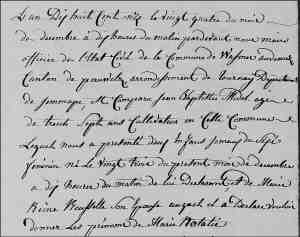 L'an Dix huit Cent onze le vingt quatre du mois
de decembre à dix heures du matin pardevant nous maire
officier de l'Etat Civil de la Commune de Wasmes audemez
Canton de peruwelz arrondissement de tournay Département
de Jemmape, Est Comparu Jean Baptiste agé
de trente Sept ans Cultivateur en Cette Commune
Lequel nous a presenté un Enfant du Sexe
féminin né le vingt trois du présent mois de decembre
à dix heures du matin de lui Déclarant et de Marie
Reine Son Epouse auquel il a Declaré vouloir
donner Les prénoms de Marie Natalie